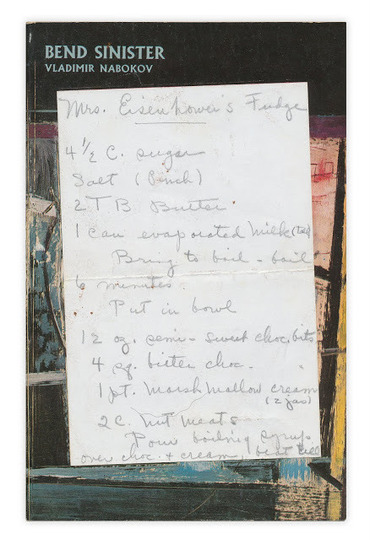 BEND SINISTER
VLADIMIR NABOKOV
Mrs. Eisenhower's Fudge
4 1/2 C. sugar
Salt (Pinch)
2 TB Butter
1 Can evaporated Milk (tall)
Bring to boil - boil
6 minutes
Put in bowl
12 oz. semi-sweet choc. bits
4 sq. bitter choc.
1 pt. Marshmallow cream
(2 jars)
2 C. nut meats
Pour boiling syrup
over choc. + cream, beat till